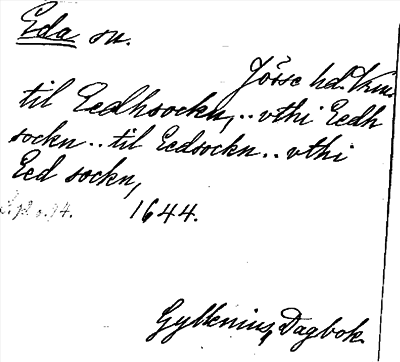 Eda sn.
Jösse hd. Vrm.
til Eedhsockn,.. vthi Eedh
sockn.. til Eedsockn.. vthi
Eed sockn,
1644.
Gyllenius Dagbok.